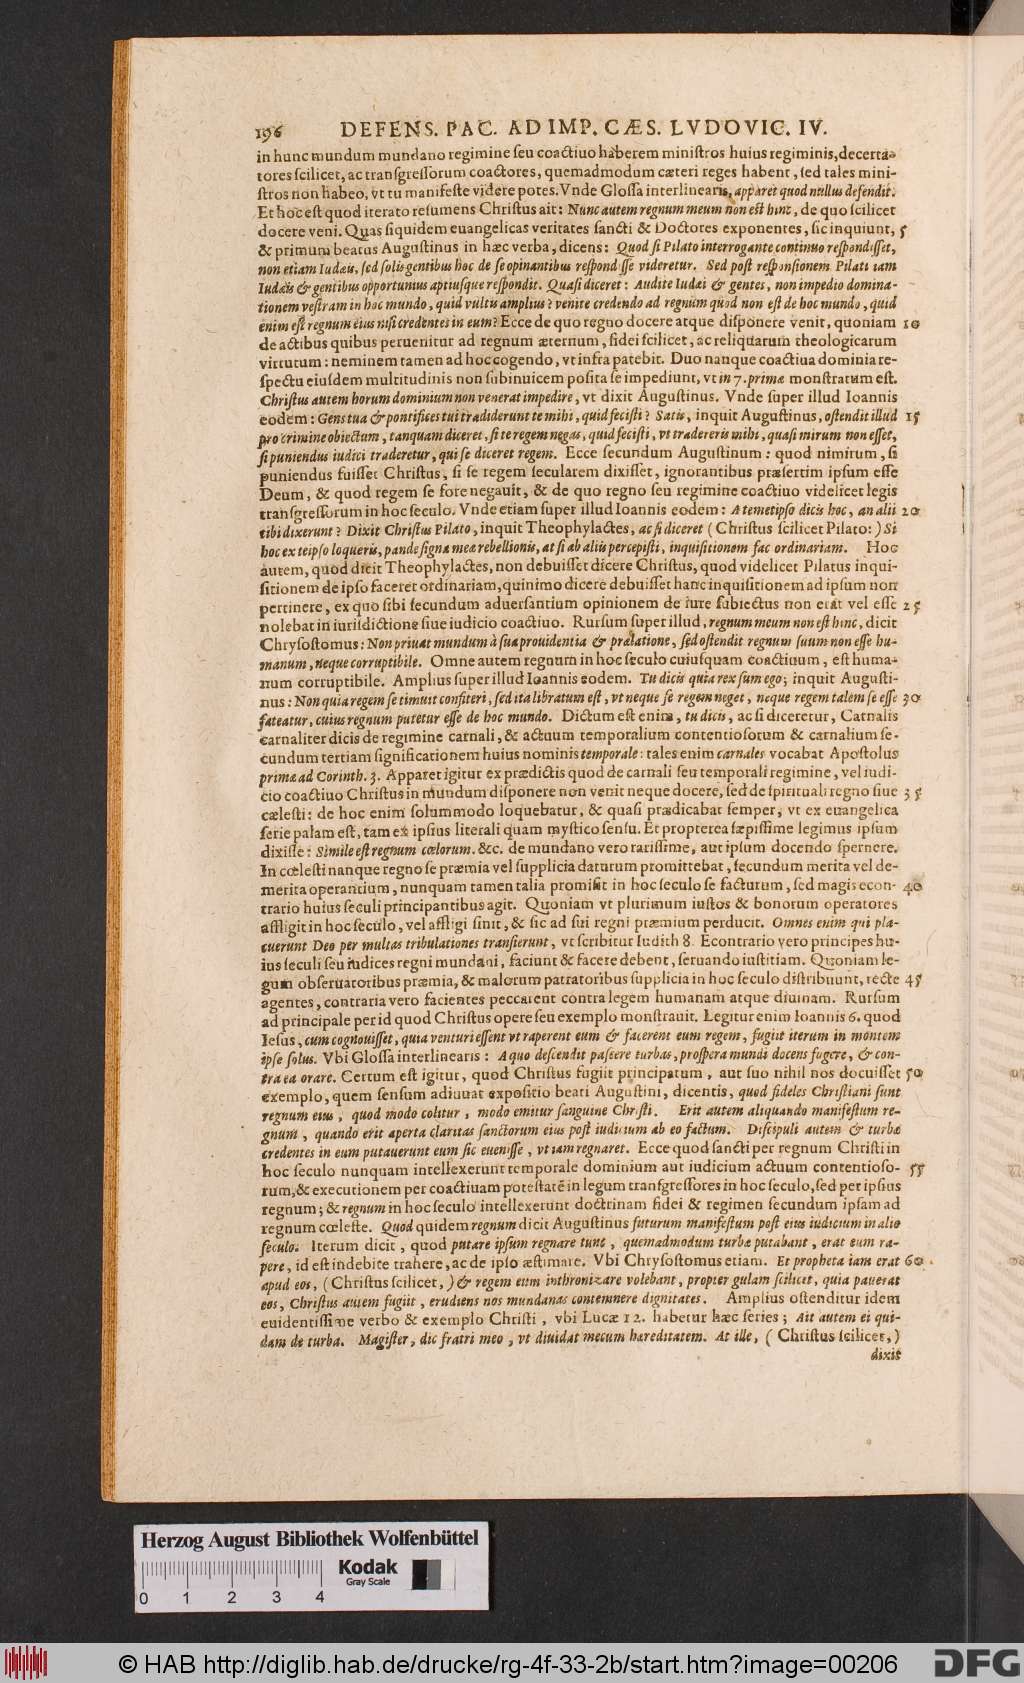 196 DEFENS. PAC. AD IMP. CÆS. LVDOVIC. IV.
in hunc mundum mundano regimine ſeu coactiuo haberem miniſtros huius regiminis, decerta-
tores ſcilicet, ac tranſgreſſorum coactores, quemadmodum cæteri reges habent, ſed tales mini-
ſtros non habeo, vt tu manifeſte videre potes. Vnde Gloſſa interlinearis, apparet quod nullus defendit.
Et hoc eſt quod iterato reſumens Chriſtus ait: Nunc autem regnum meum non eſt hinc, de quo ſcilicet
docere veni. Quas ſiquidem euangelicas veritates ſancti & Doctores exponentes, ſic inquiunt, 5
& primum beatus Auguſtinus in hæc verba, dicens: Quod ſi Pilato interrogante continuo reſpondiſſet,
non etiam Iudæis, ſed ſolis gentibus hoc de ſe opinantibus reſpondiſſe videretur. Sed poſt reſponſionem Pilati iam
Iudæis & gentibus opportunius aptiuſque reſpondit. Quaſi diceret: Audite Iudæi & gentes, non impedio domina-
tionem veſtram in hoc mundo, quid vultis amplius? venite credendo ad regnum quod non eſt de hoc mundo, quid
enim eſt regnum eius niſi credentes in eum? Ecce de quo regno docere atque diſponere venit, quoniam 10
de actibus quibus peruenitur ad regnum æternum, fidei ſcilicet, ac reliquarum theologicarum
virtutum: neminem tamen ad hoc cogendo, vt infra patebit. Duo nanque coactiua dominia re-
ſpectu eiuſdem multitudinis non ſubinuicem poſita ſe impediunt, vt in 7. primæ monſtratum eſt.
Chriſtus autem horum dominium non venerat impedire, vt dixit Auguſtinus. Vnde ſuper illud Ioannis
eodem: Gens tua & pontifices tui tradiderunt te mihi, quid feciſti? Satis, inquit Auguſtinus, oſtendit illud 15
pro crimine obiectum, tanquam diceret, ſi te regem negas, quid feciſti, vt tradereris mihi, quaſi mirum non eſſet,
ſi puniendus iudici traderetur, qui ſe diceret regem. Ecce ſecundum Auguſtinum: quod nimirum, ſi
puniendus fuiſſet Chriſtus, ſi ſe regem ſecularem dixiſſet, ignorantibus præſertim ipſum eſſe
Deum, & quod regem ſe fore negauit, & de quo regno ſeu regimine coactiuo videlicet legis
tranſgreſſorum in hoc ſeculo. Vnde etiam ſuper illud Ioannis eodem: A temetipſo dicis hoc, an alii 20
tibi dixerunt? Dixit Chriſtus Pilato, inquit Theophylactes, ac ſi diceret (Chriſtus ſcilicet Pilato:) Si
hoc ex teipſo loqueris, pande ſigna meæ rebellionis, at ſi ab aliis percepiſti, inquiſitionem fac ordinariam. Hoc
autem, quod dicit Theophylactes, non debuiſſet dicere Chriſtus, quod videlicet Pilatus inqui-
ſitionem de ipſo faceret ordinariam, quinimo dicere debuiſſet hanc inquiſitionem ad ipſum non
pertinere, ex quo ſibi ſecundum aduerſantium opinionem de iure ſubiectus non erat vel eſſe 25
nolebat in iuriſdictione ſiue iudicio coactiuo. Rurſum ſuper illud, regnum meum non eſt hinc, dicit
Chryſoſtomus: Non priuat mundum à ſua prouidentia & prælatione, ſed oſtendit regnum ſuum non eſſe hu-
manum, neque corruptibile. Omne autem regnum in hoc ſeculo cuiuſquam coactiuum, eſt huma-
num corruptibile. Amplius ſuper illud Ioannis eodem. Tu dicis quia rex ſum ego; inquit Auguſti-
nus: Non quia regem ſe timuit confiteri, ſed ita libratum eſt, vt neque ſe regem neget, neque regem talem ſe eſſe 30
fateatur, cuius regnum putetur eſſe de hoc mundo. Dictum eſt enim, tu dicis, ac ſi diceretur, Carnalis
carnaliter dicis de regimine carnali, & actuum temporalium contentioſorum & carnalium ſe-
cundum tertiam ſignificationem huius nominis temporale: tales enim carnales vocabat Apoſtolus
primæ ad Corinth. 3. Apparet igitur ex prædictis quod de carnali ſeu temporali regimine, vel iudi-
cio coactiuo Chriſtus in mundum diſponere non venit neque docere, ſed de ſpirituali regno ſiue 35
cæleſti: de hoc enim ſolummodo loquebatur, & quaſi prædicabat ſemper, vt ex euangelica
ſerie palam eſt, tam ex ipſius literali quam myſtico ſenſu. Et propterea ſæpiſſime legimus ipſum
dixiſſe: Simile eſt regnum cœlorum. &c. de mundano vero rariſſime, aut ipſum docendo ſpernere.
In cœleſti nanque regno ſe præmia vel ſupplicia daturum promittebat, ſecundum merita vel de-
merita operantium, nunquam tamen talia promiſit in hoc ſeculo ſe facturum, ſed magis econ- 40
trario huius ſeculi principantibus agit. Quoniam vt plurimum iuſtos & bonorum operatores
affligit in hoc ſeculo, vel affligi ſinit, & ſic ad ſui regni præmium perducit. Omnes enim qui pla-
cuerunt Deo per multas tribulationes tranſierunt, vt ſcribitur Iudith 8. Econtrario vero principes hu-
ius ſeculi ſeu iudices regni mundani, faciunt & facere debent, ſeruando iuſtitiam. Quoniam le-
gum obſeruatoribus præmia, & malorum patratoribus ſupplicia in hoc ſeculo diſtribuunt, recte 45
agentes, contraria vero facientes peccarent contra legem humanam atque diuinam. Rurſum
ad principale per id quod Chriſtus opere ſeu exemplo monſtrauit. Legitur enim Ioannis 6. quod
Ieſus, cum cognouiſſet, quia venturi eſſent vt raperent eum & facerent eum regem, fugiit iterum in montem
ipſe ſolus. Vbi Gloſſa interlinearis: A quo deſcendit paſcere turbas, proſpera mundi docens fugere, & con-
tra ea orare. Certum eſt igitur, quod Chriſtus fugiit principatum, aut ſuo nihil nos docuiſſet 50
exemplo, quem ſenſum adiuuat expoſitio beati Auguſtini, dicentis, quod fideles Chriſtiani ſunt
regnum eius, quod modo colitur, modo emitur ſanguine Chriſti. Erit autem aliquando manifeſtum re-
gnum, quando erit aperta claritas ſanctorum eius poſt iudicium ab eo factum. Diſcipuli autem & turbæ
credentes in eum putauerunt eum ſic eueniſſe, vt iam regnaret. Ecce quod ſancti per regnum Chriſti in
hoc ſeculo nunquam intellexerunt temporale dominium aut iudicium actuum contentioſo- 55
rum, & executionem per coactiuam poteſtatē in legum tranſgreſſores in hoc ſeculo, ſed per ipſius
regnum; & regnum in hoc ſeculo intellexerunt doctrinam fidei & regimen ſecundum ipſam ad
regnum cœleſte. Quod quidem regnum dicit Auguſtinus futurum manifeſtum poſt eius iudicium in alio
ſeculo. Iterum dicit, quod putare ipſum regnare tunc, quemadmodum turbæ putabant, erat eum ra-
pere, id eſt indebite trahere, ac de ipſo æſtimare. Vbi Chryſoſtomus etiam. Et propheta iam erat 60
apud eos, (Chriſtus ſcilicet,) & regem eum inthronizare volebant, propter gulam ſcilicet, quia pauerat
eos, Chriſtus autem fugiit, erudiens nos mundanas contemnere dignitates. Amplius oſtenditur idem
euidentiſſime verbo & exemplo Chriſti, vbi Lucæ 12. habetur hæc ſeries; Ait autem ei qui-
dam de turba. Magiſter, dic fratri meo, vt diuidat mecum hæreditatem. At ille, (Chriſtus ſcilicet,)
dixit
Herzog August Bibliothek Wolfenbüttel
Kodak
Gray Scale
0 1 2 3 4
© HAB http://diglib.hab.de/drucke/rg-4f-33-2b/start.htm?image=00206
DFG